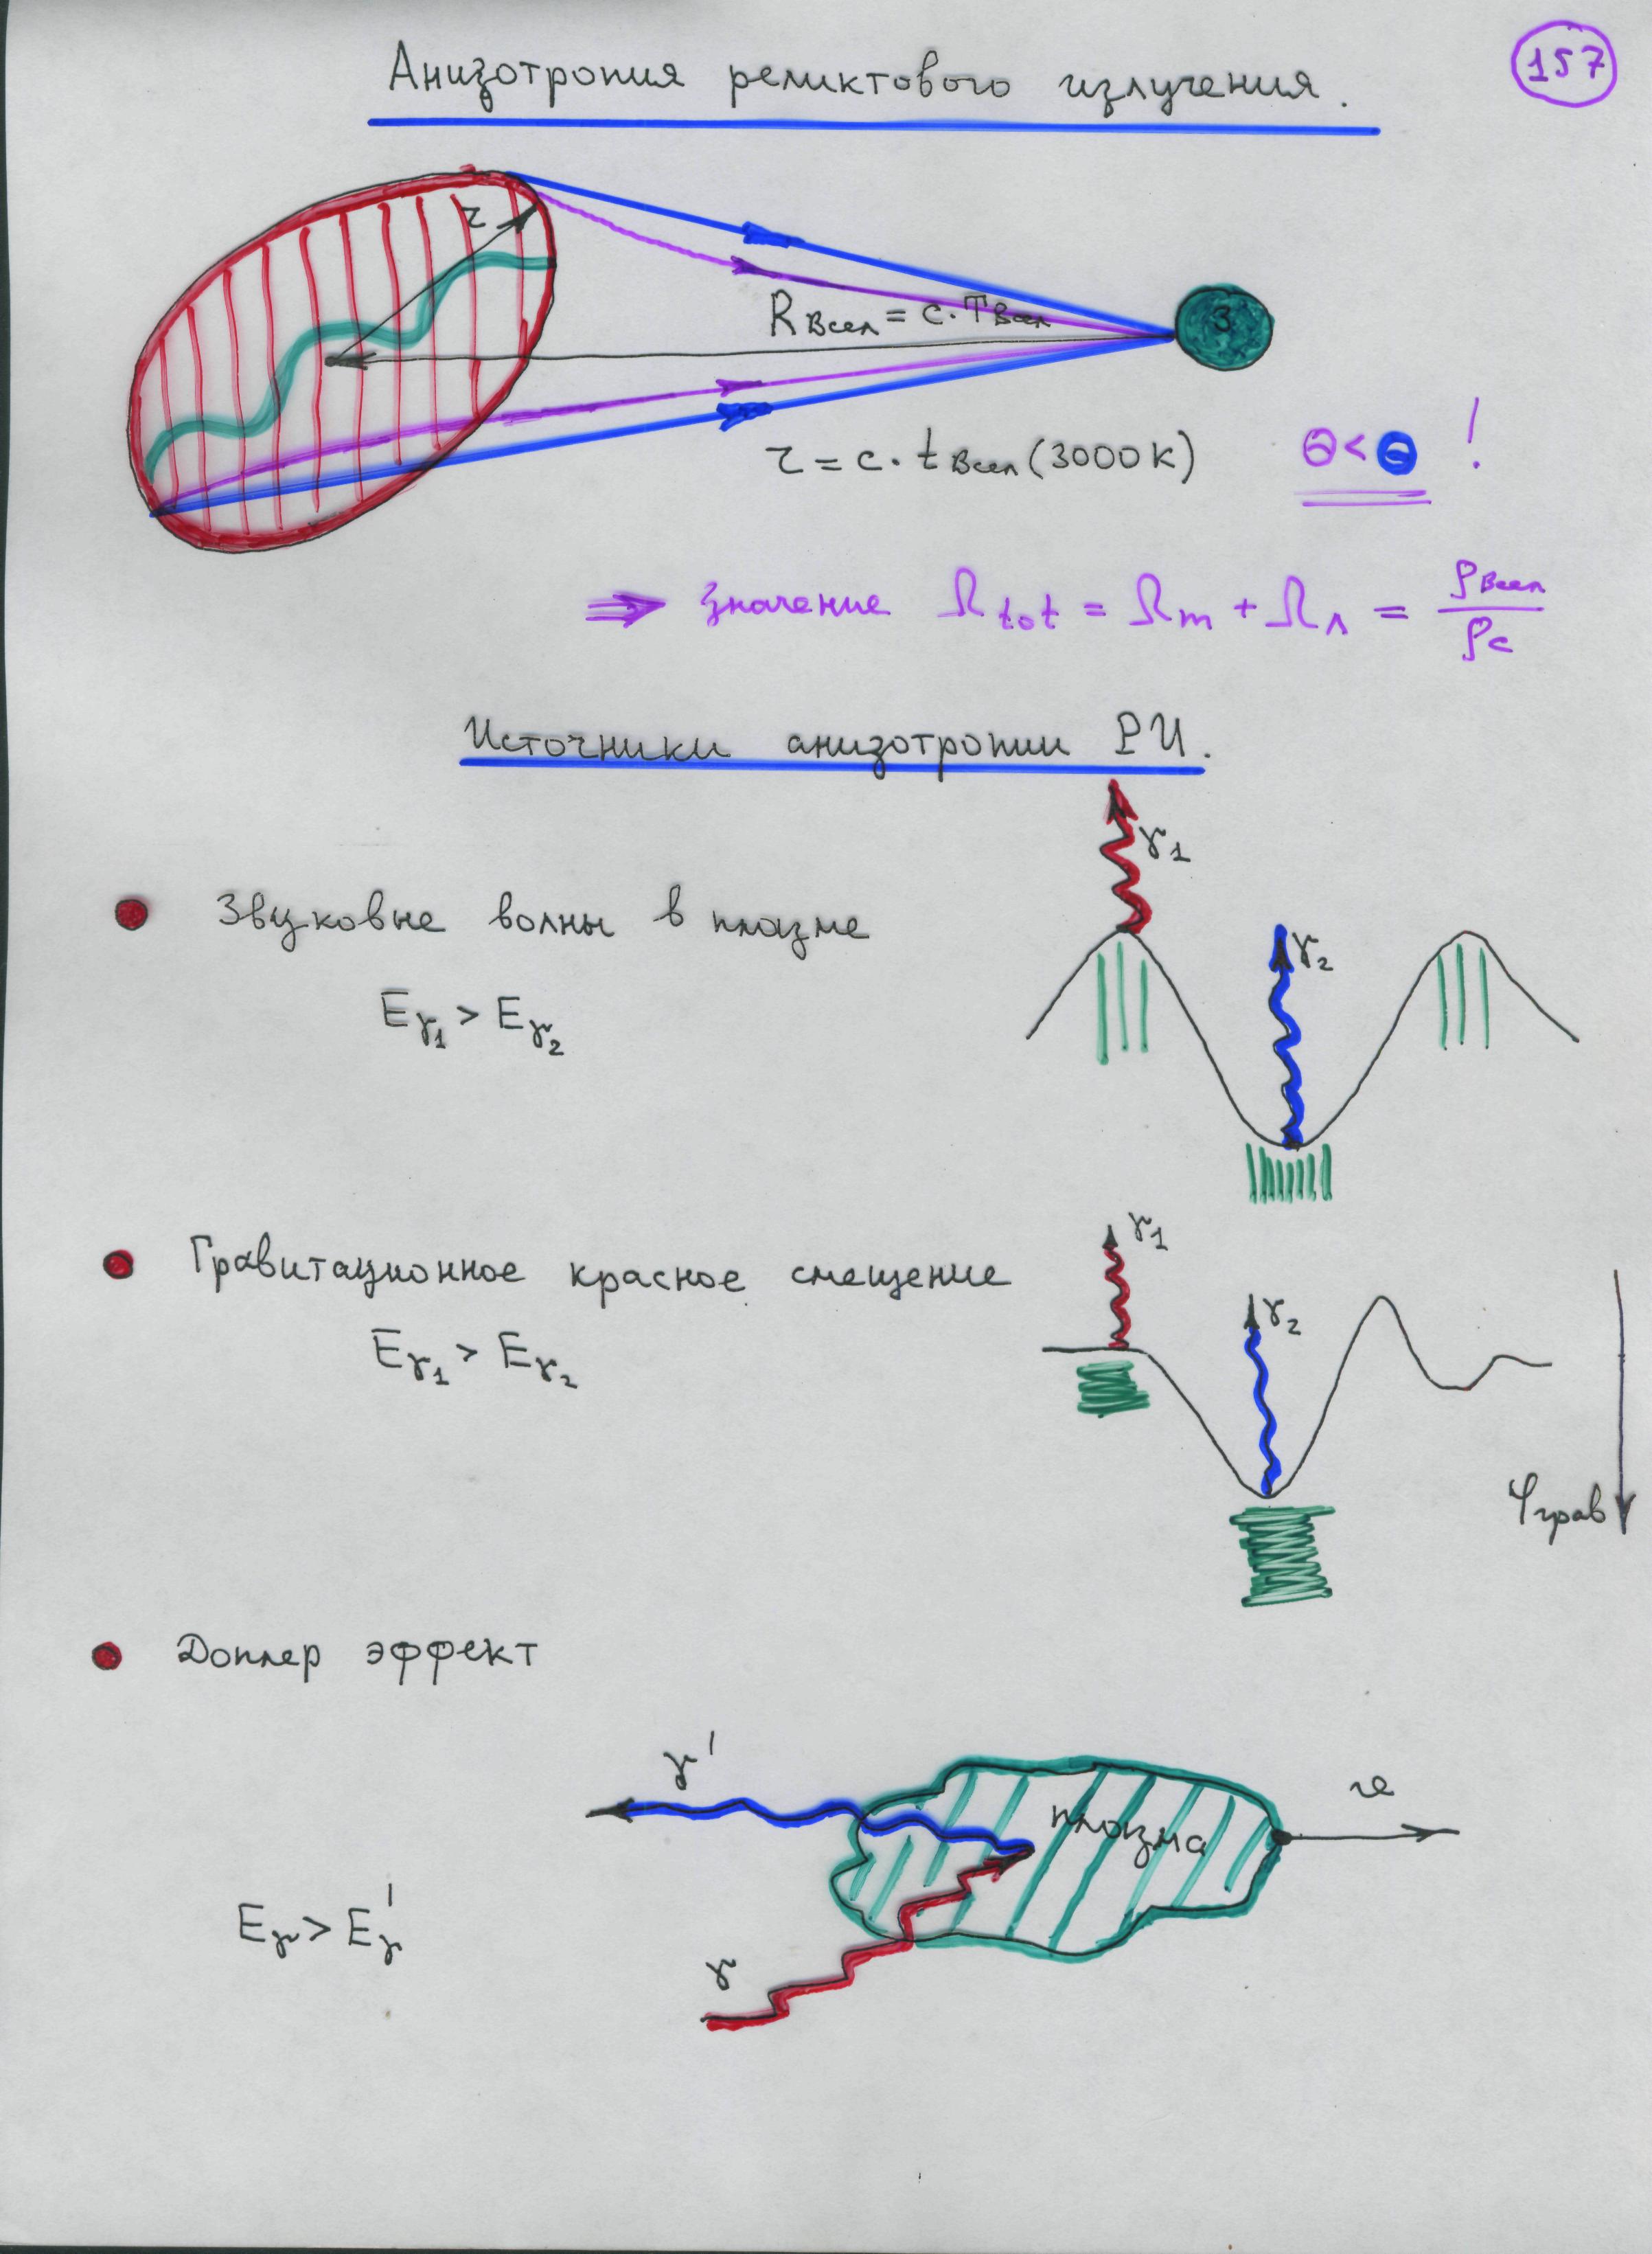 Анизотропия реликтового излучения.
157
r
R Всел = c · T Всел
З
r = c · t Всел (3000 K)
Θ < Θ !
⇒ значение Ω tot = Ω m + Ω Λ = ρ Всел / ρ c
Источники анизотропии РИ.
γ1
Звуковые волны в плазме
γ2
E γ1 > E γ2
γ1
Гравитационное красное смещение
γ2
E γ1 > E γ2
φ грав
Доплер эффект
γ'
v
плазма
E γ > E' γ
γ